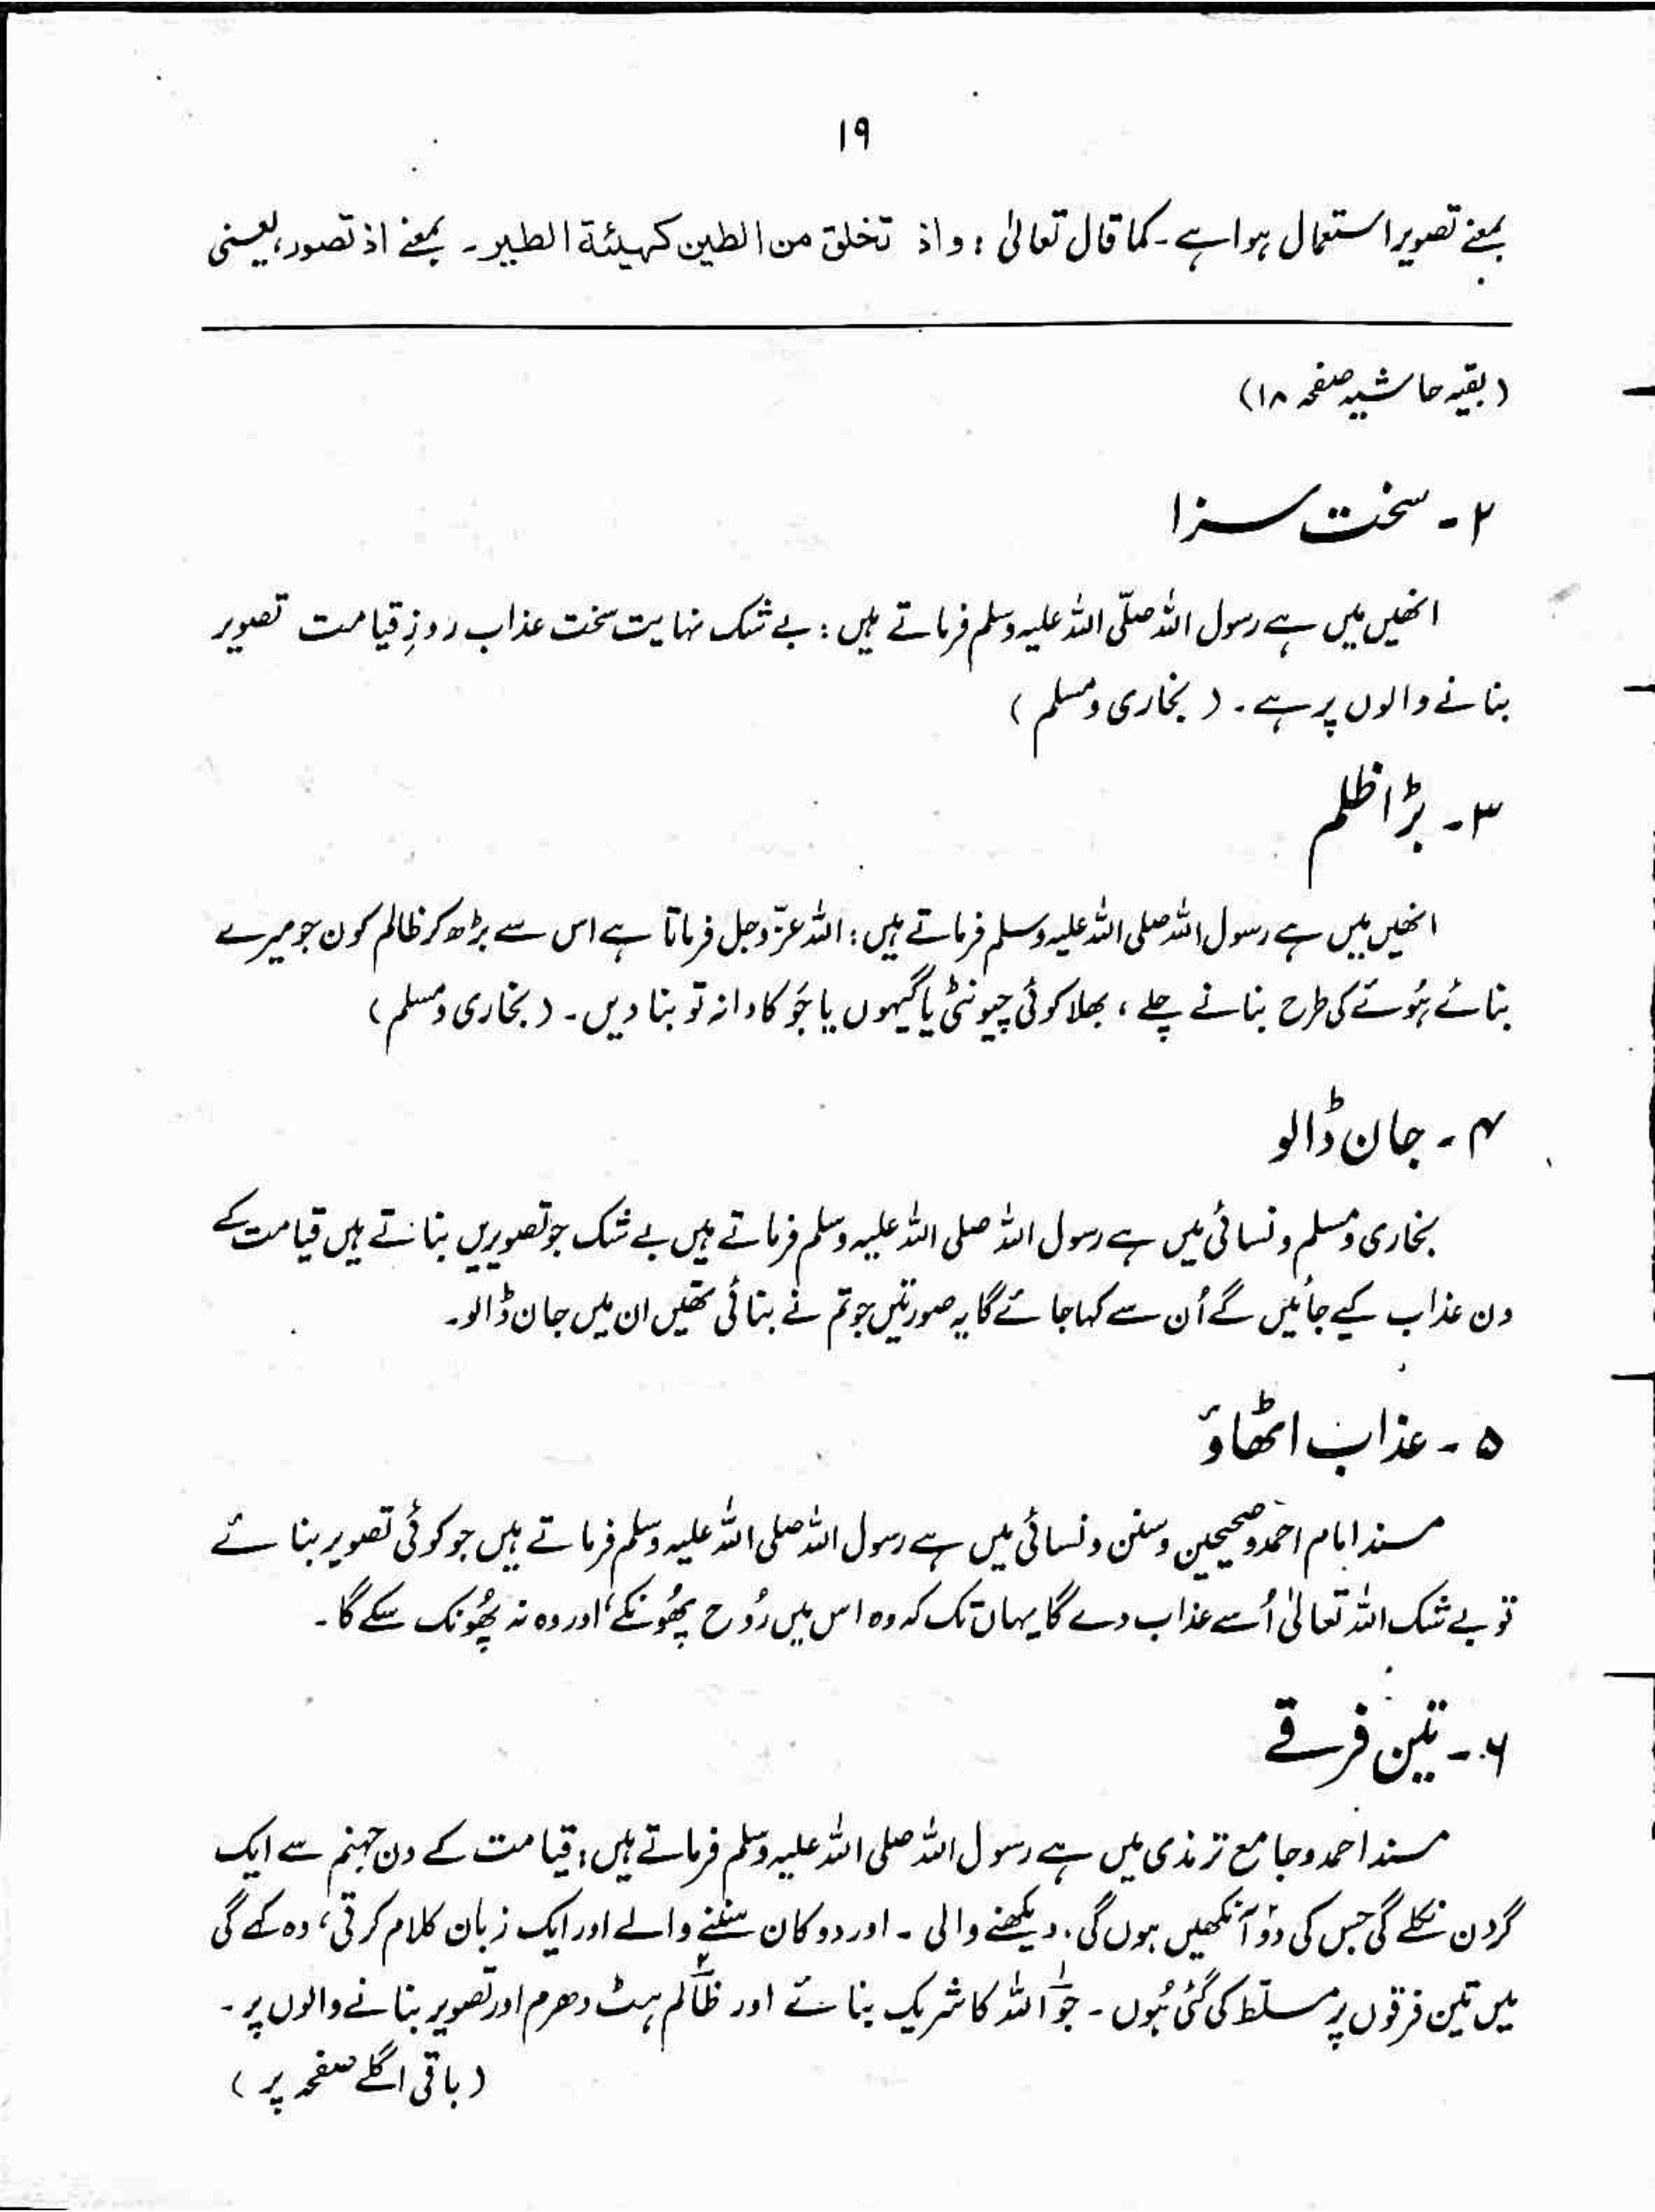 ۱۹
بمعنے تصویر استعمال ہوا ہے ۔ کما قال تعالیٰ : واذ تخلق من الطین کہیئۃ الطیر ۔ بمعنے اذ تصور، یعنی
(بقیہ حاشیہ صفحہ ۱۸)
۲ ۔ سخت سزا
انھیں میں ہے رسول اللہ صلّی اللہ علیہ وسلم فرماتے ہیں : بے شک نہایت سخت عذاب روزِ قیامت تصویر
بنانے والوں پر ہے ۔ ( بخاری و مسلم )
۳ ۔ بڑا ظلم
انھیں میں ہے رسول اللہ صلی اللہ علیہ وسلم فرماتے ہیں : اللہ عزّوجل فرماتا ہے اس سے بڑھ کر ظالم کون جو میرے
بنائے ہُوئے کی طرح بنانے چلے ، بھلا کوئی چیونٹی یا گیہوں یا جَو کا دانہ تو بنا دیں ۔ ( بخاری و مسلم )
۴ ۔ جان ڈالو
بخاری و مسلم و نسائی میں ہے رسول اللہ صلی اللہ علیہ وسلم فرماتے ہیں بے شک جو تصویریں بناتے ہیں قیامت کے
دن عذاب کیے جائیں گے اُن سے کہا جائے گا یہ صورتیں جو تم نے بنائی تھیں ان میں جان ڈالو۔
۵ ۔ عذاب اٹھاؤ
مسند امام احمد و صحیحین و سنن و نسائی میں ہے رسول اللہ صلی اللہ علیہ وسلم فرماتے ہیں جو کوئی تصویر بنائے
تو بے شک اللہ تعالیٰ اُسے عذاب دے گا یہاں تک کہ وہ اس میں رُوح پھُونکے، اور وہ نہ پھُونک سکے گا ۔
۶ ۔ تین فرقے
مسند احمد و جامع ترمذی میں ہے رسول اللہ صلی اللہ علیہ وسلم فرماتے ہیں : قیامت کے دن جہنم سے ایک
گردن نکلے گی جس کی دو آنکھیں ہوں گی ۔ دیکھنے والی ۔ اور دو کان سننے والے اور ایک زبان کلام کرتی، وہ کہے گی
میں تین فرقوں پر مسلّط کی گئی ہُوں ۔ جو۱ اللہ کا شریک بنائے اور ظالم۲ ہٹ دھرم اور تصویر بنانے والوں پر ۔
( باقی اگلے صفحہ پر )